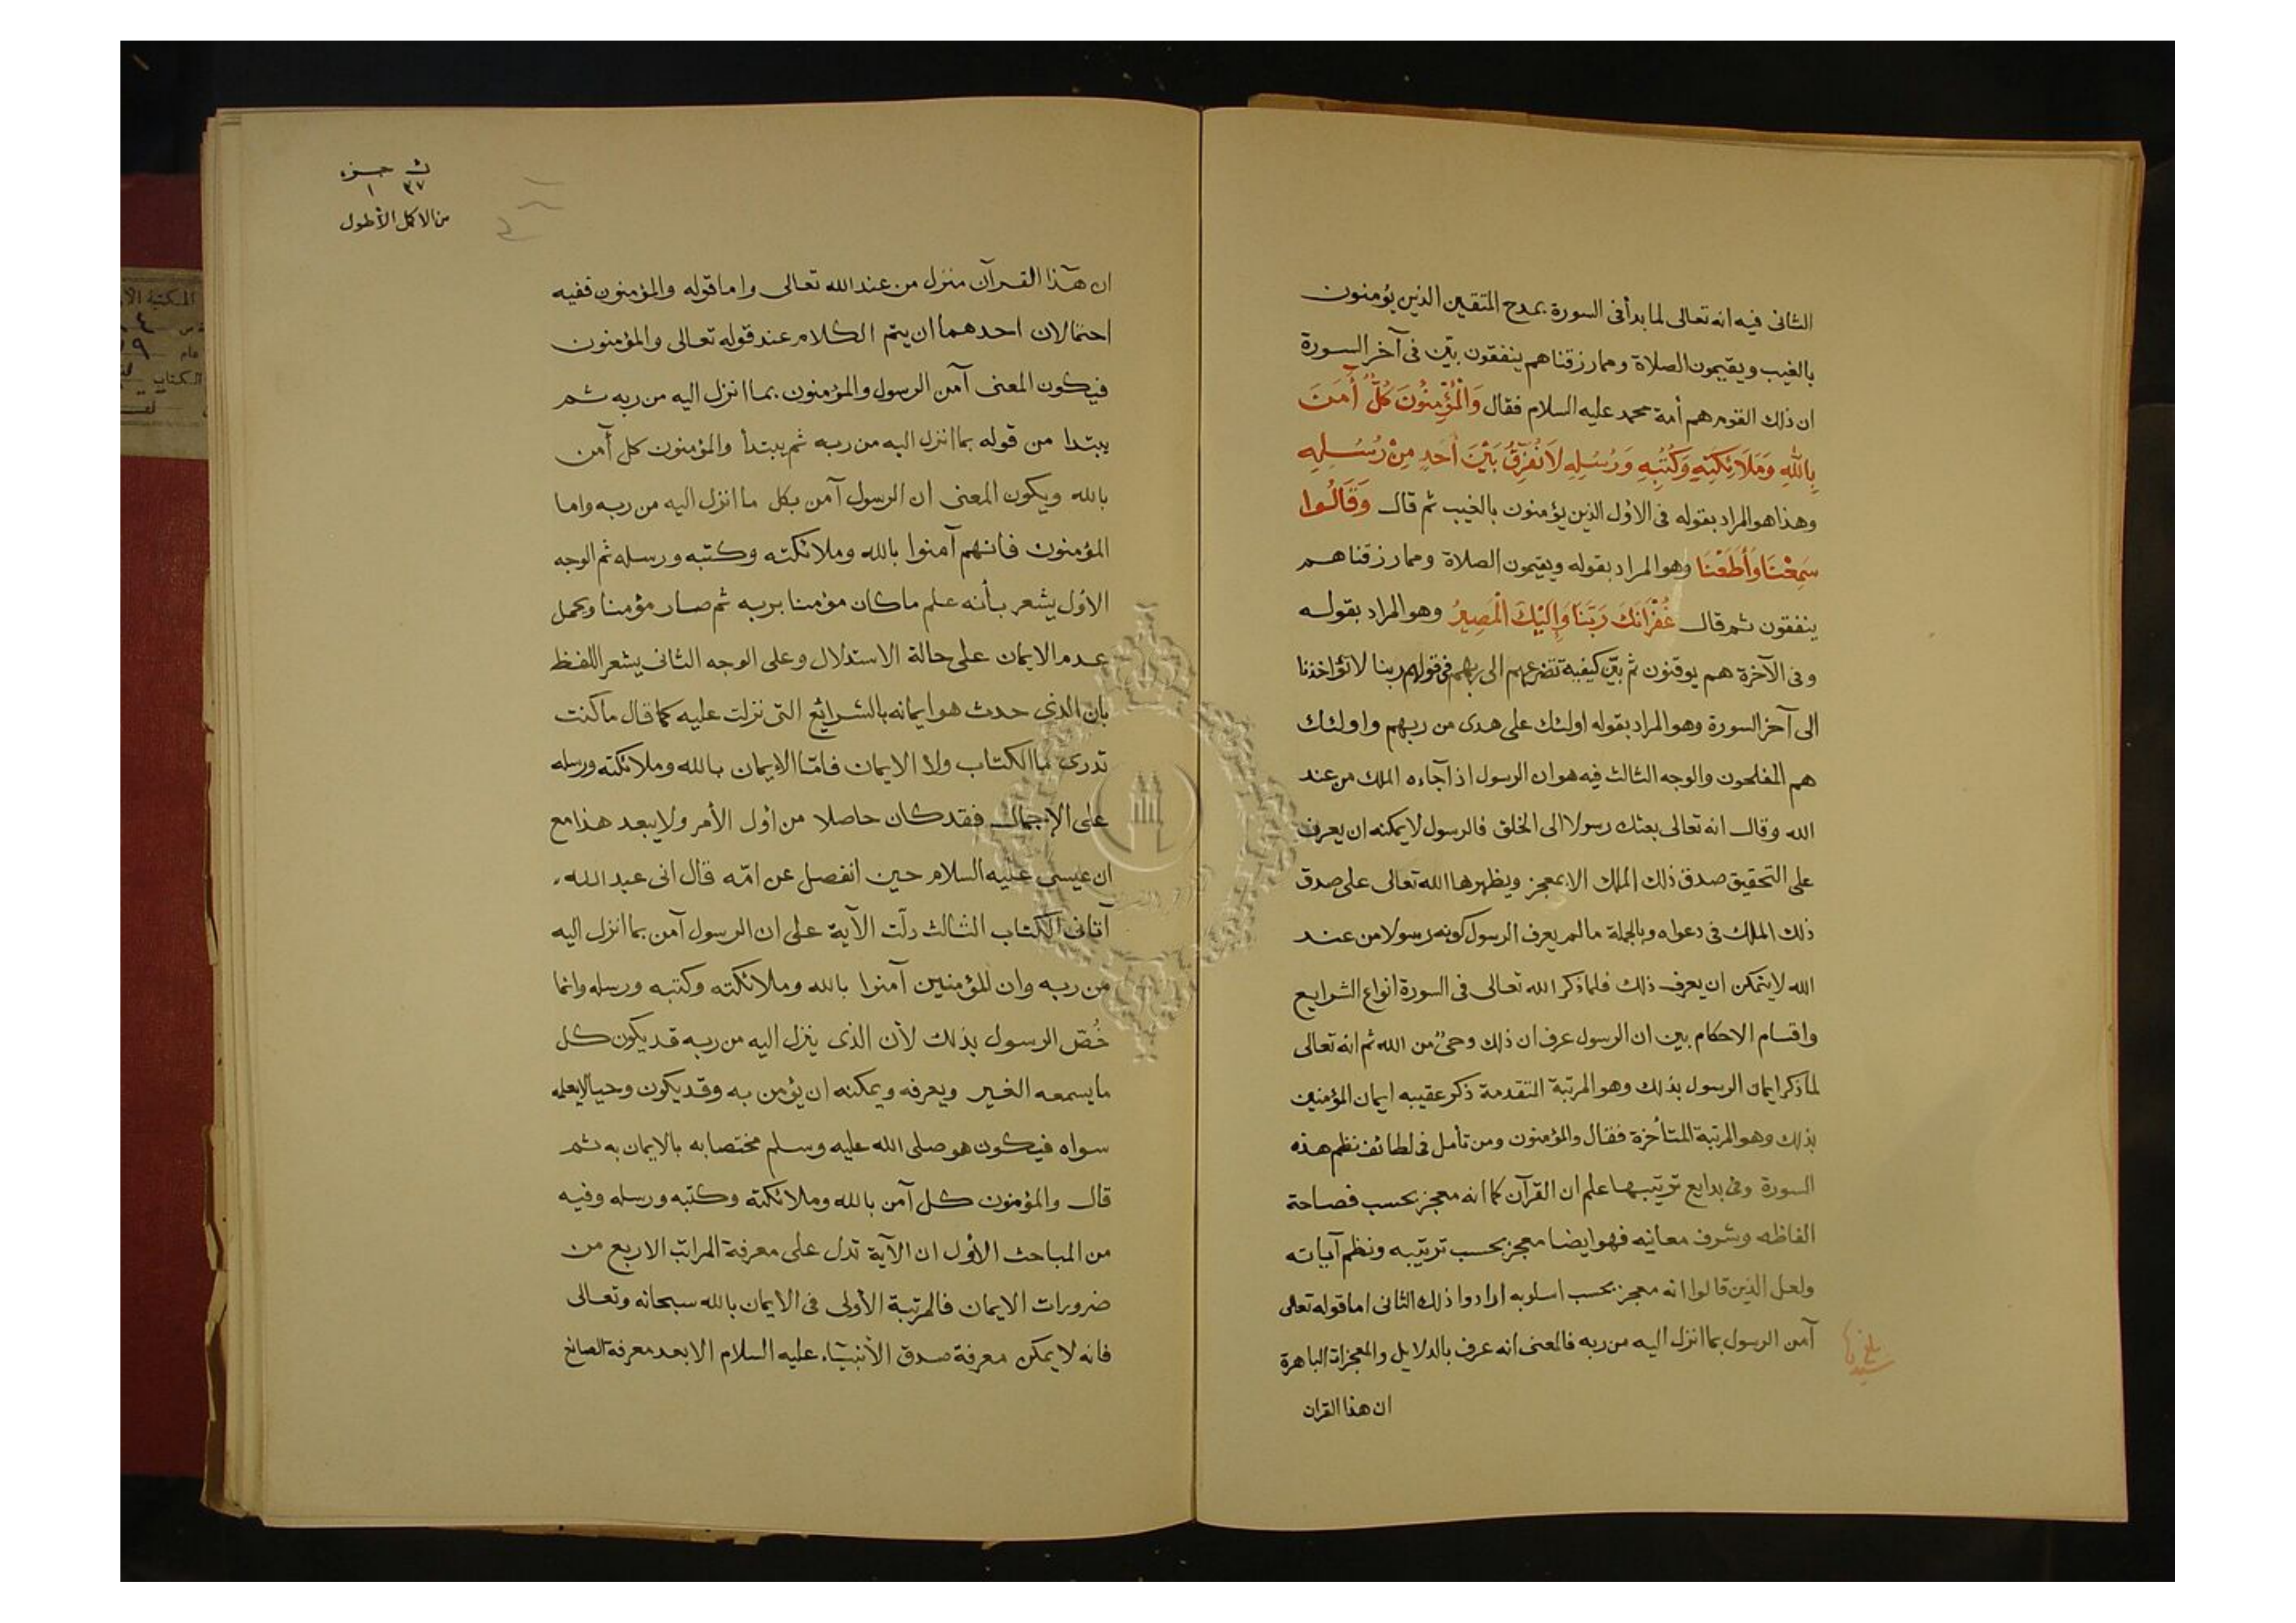 الثانى فيه انه تعالى لما بدأ فى السورة بمدح المتقين الذين يؤمنون
بالغيب ويقيمون الصلاة ومما رزقناهم ينفقون بيّن فى آخر السورة
ان ذلك القوم هم أمة محمد عليه السلام فقال وَالْمُؤْمِنُونَ كُلٌّ أَمَنَ
بِاللّٰهِ وَمَلَائِكَتِهِ وَكُتُبِهِ وَرُسُلِهِ لَا نُفَرِّقُ بَيْنَ أَحَدٍ مِنْ رُسُلِهِ
وهذا هو المراد بقوله فى الاوّل الذين يؤمنون بالغيب ثم قال وَقَالُوا
سَمِعْنَا وَأَطَعْنَا وهو المراد بقوله ويقيمون الصلاة ومما رزقناهم
ينفقون ثم قال غُفْرَانَكَ رَبَّنَا وَإِلَيْكَ الْمَصِيرُ وهو المراد بقوله
وفى الآخرة هم يوقنون ثم بيّن كيفية تضرعهم الى ربهم فى قولهم ربنا لا تؤاخذنا
الى آخر السورة وهو المراد بقوله اولئك على هدى من ربهم واولئك
هم المفلحون والوجه الثالث فيه هو ان الرسول اذا جاءه الملك من عند
الله وقال انه تعالى بعثك رسولا الى الخلق فالرسول لا يمكنه ان يعرف
على التحقيق صدق ذلك الملك الا بمعجز ويظهرها الله تعالى على صدق
ذلك الملك فى دعواه وبالجملة ما لم يعرف الرسول كونه رسولا من عند
الله لا يتمكن ان يعرف ذلك فلما ذكر الله تعالى فى السورة انواع الشرايع
واقسام الاحكام بين ان الرسول عرف ان ذلك وحىٌ من الله ثم انه تعالى
لما ذكر ايمان الرسول بذلك وهو المرتبة المتقدمة ذكر عقيبه ايمان المؤمنين
بذلك وهو المرتبة المتأخرة فقال والمؤمنون ومن تأمل فى لطائف نظم هذه
السورة وفى بدايع ترتيبها علم ان القرآن كما انه معجز بحسب فصاحة
الفاظه وشرف معانيه فهو ايضا معجز بحسب ترتيبه ونظم آياته
ولعل الذين قالوا انه معجز بحسب اسلوبه ارادوا ذلك الثانى اما قوله تعالى
آمن الرسول بما انزل اليه من ربه فالمعنى انه عرف بالدلايل والمعجزات الباهرة
ان هذا القران
بلغ
ث جزء
٣٧ ١
من الاكمل الأطول
ان هذا القرآن منزل من عند الله تعالى واما قوله والمؤمنون ففيه
احتمالان احدهما ان يتم الكلام عند قوله تعالى والمؤمنون
فيكون المعنى آمن الرسول والمؤمنون بما انزل اليه من ربه ثم
يبتدا من قوله بما انزل اليه من ربه ثم يبتدأ والمؤمنون كل آمن
بالله ويكون المعنى ان الرسول آمن بكل ما انزل اليه من ربه واما
المؤمنون فانهم آمنوا بالله وملائكته وكتبه ورسله ثم الوجه
الاوّل يشعر بأنه علم ما كان مؤمنا بربه ثم صار مؤمنا ويحمل
عدم الايمان على حالة الاستدلال وعلى الوجه الثانى يشعر اللفظ
بان الذى حدث هو ايمانه بالشرائع التى نزلت عليه كما قال ما كنت
تدرى ما الكتاب ولا الايمان فامّا الايمان بالله وملائكته ورسله
على الإجمال فقد كان حاصلا من اوّل الأمر ولا يبعد هذا مع
ان عيسى عليه السلام حين انفصل عن امّه قال انى عبد الله
آتانى الكتاب الثالث دلّت الآية على ان الرسول آمن بما انزل اليه
من ربه وان المؤمنين آمنوا بالله وملائكته وكتبه ورسله وانما
خُصّ الرسول بذلك لأن الذى ينزل اليه من ربه قد يكون كل
ما يسمعه الغير ويعرفه ويمكنه ان يؤمن به وقد يكون وحيا لا يعلمه
سواه فيكون هو صلى الله عليه وسلم مختصا به بالايمان به ثم
قال والمؤمنون كل آمن بالله وملائكته وكتبه ورسله وفيه
من المباحث الأوّل ان الآية تدل على معرفة المراتب الاربع من
ضرورات الايمان فالمرتبة الأولى فى الايمان بالله سبحانه وتعالى
فانه لا يمكن معرفة صدق الأنبيآء عليه السلام الا بعد معرفة الصانع